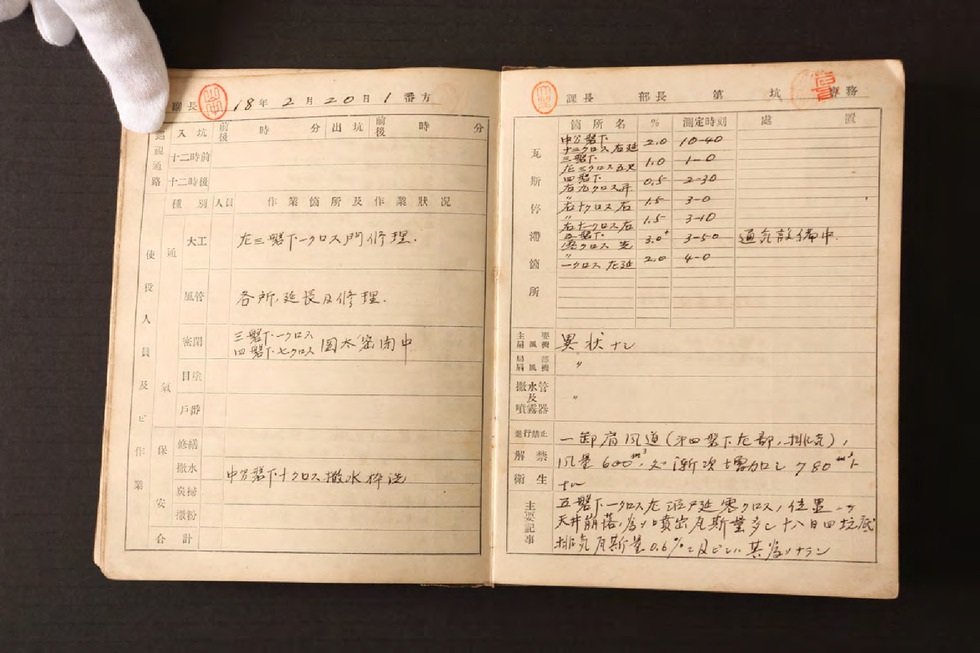 18年2月20日1番方
入坑 前後 時 分 出坑 前後 時 分
巡視通路
十二時前
十二時後
種別 人員 作業箇所及作業狀況
使役人員及ビ作業
通氣
大工 左三盤下一クロス門修理.
風管 各所,延長及修理.
密閉 三盤下一クロス
四盤下七クロス 図木密閉中
目塗
戸番
保安
修繕
撒水 中分盤下十クロス撒水枠洗
炭掃
撒粉
合計
課長 部長 第 坑 専務
瓦斯停滯箇所
箇所名 % 測定時刻 處置
中分盤下
十二クロス右延 2.0 10-40
三盤下
左三クロス 1.0 1-0
四盤下
右九クロス 0.5 2-30
〃
右十クロス右 1.5 3-0
〃
右十一クロス右 1.5 3-10
五盤下
零クロス 3.0 3-50 通気設備中.
〃
一クロス左延 2.0 4-0
主要扇風機 異状ナシ
局部扇風機 〃
撒水管及噴霧器 〃
進行禁止
解禁
衛生
一卸肩風道(第四盤下左部,排気),
風量600m³, 漸次増加シ780m³ト
ナル
主要記事
五盤下一クロス左 延零クロス,位置
天井崩落,為メ噴出瓦斯量多シ十八日四坑底
排気瓦斯量0.6% 其為メナラン